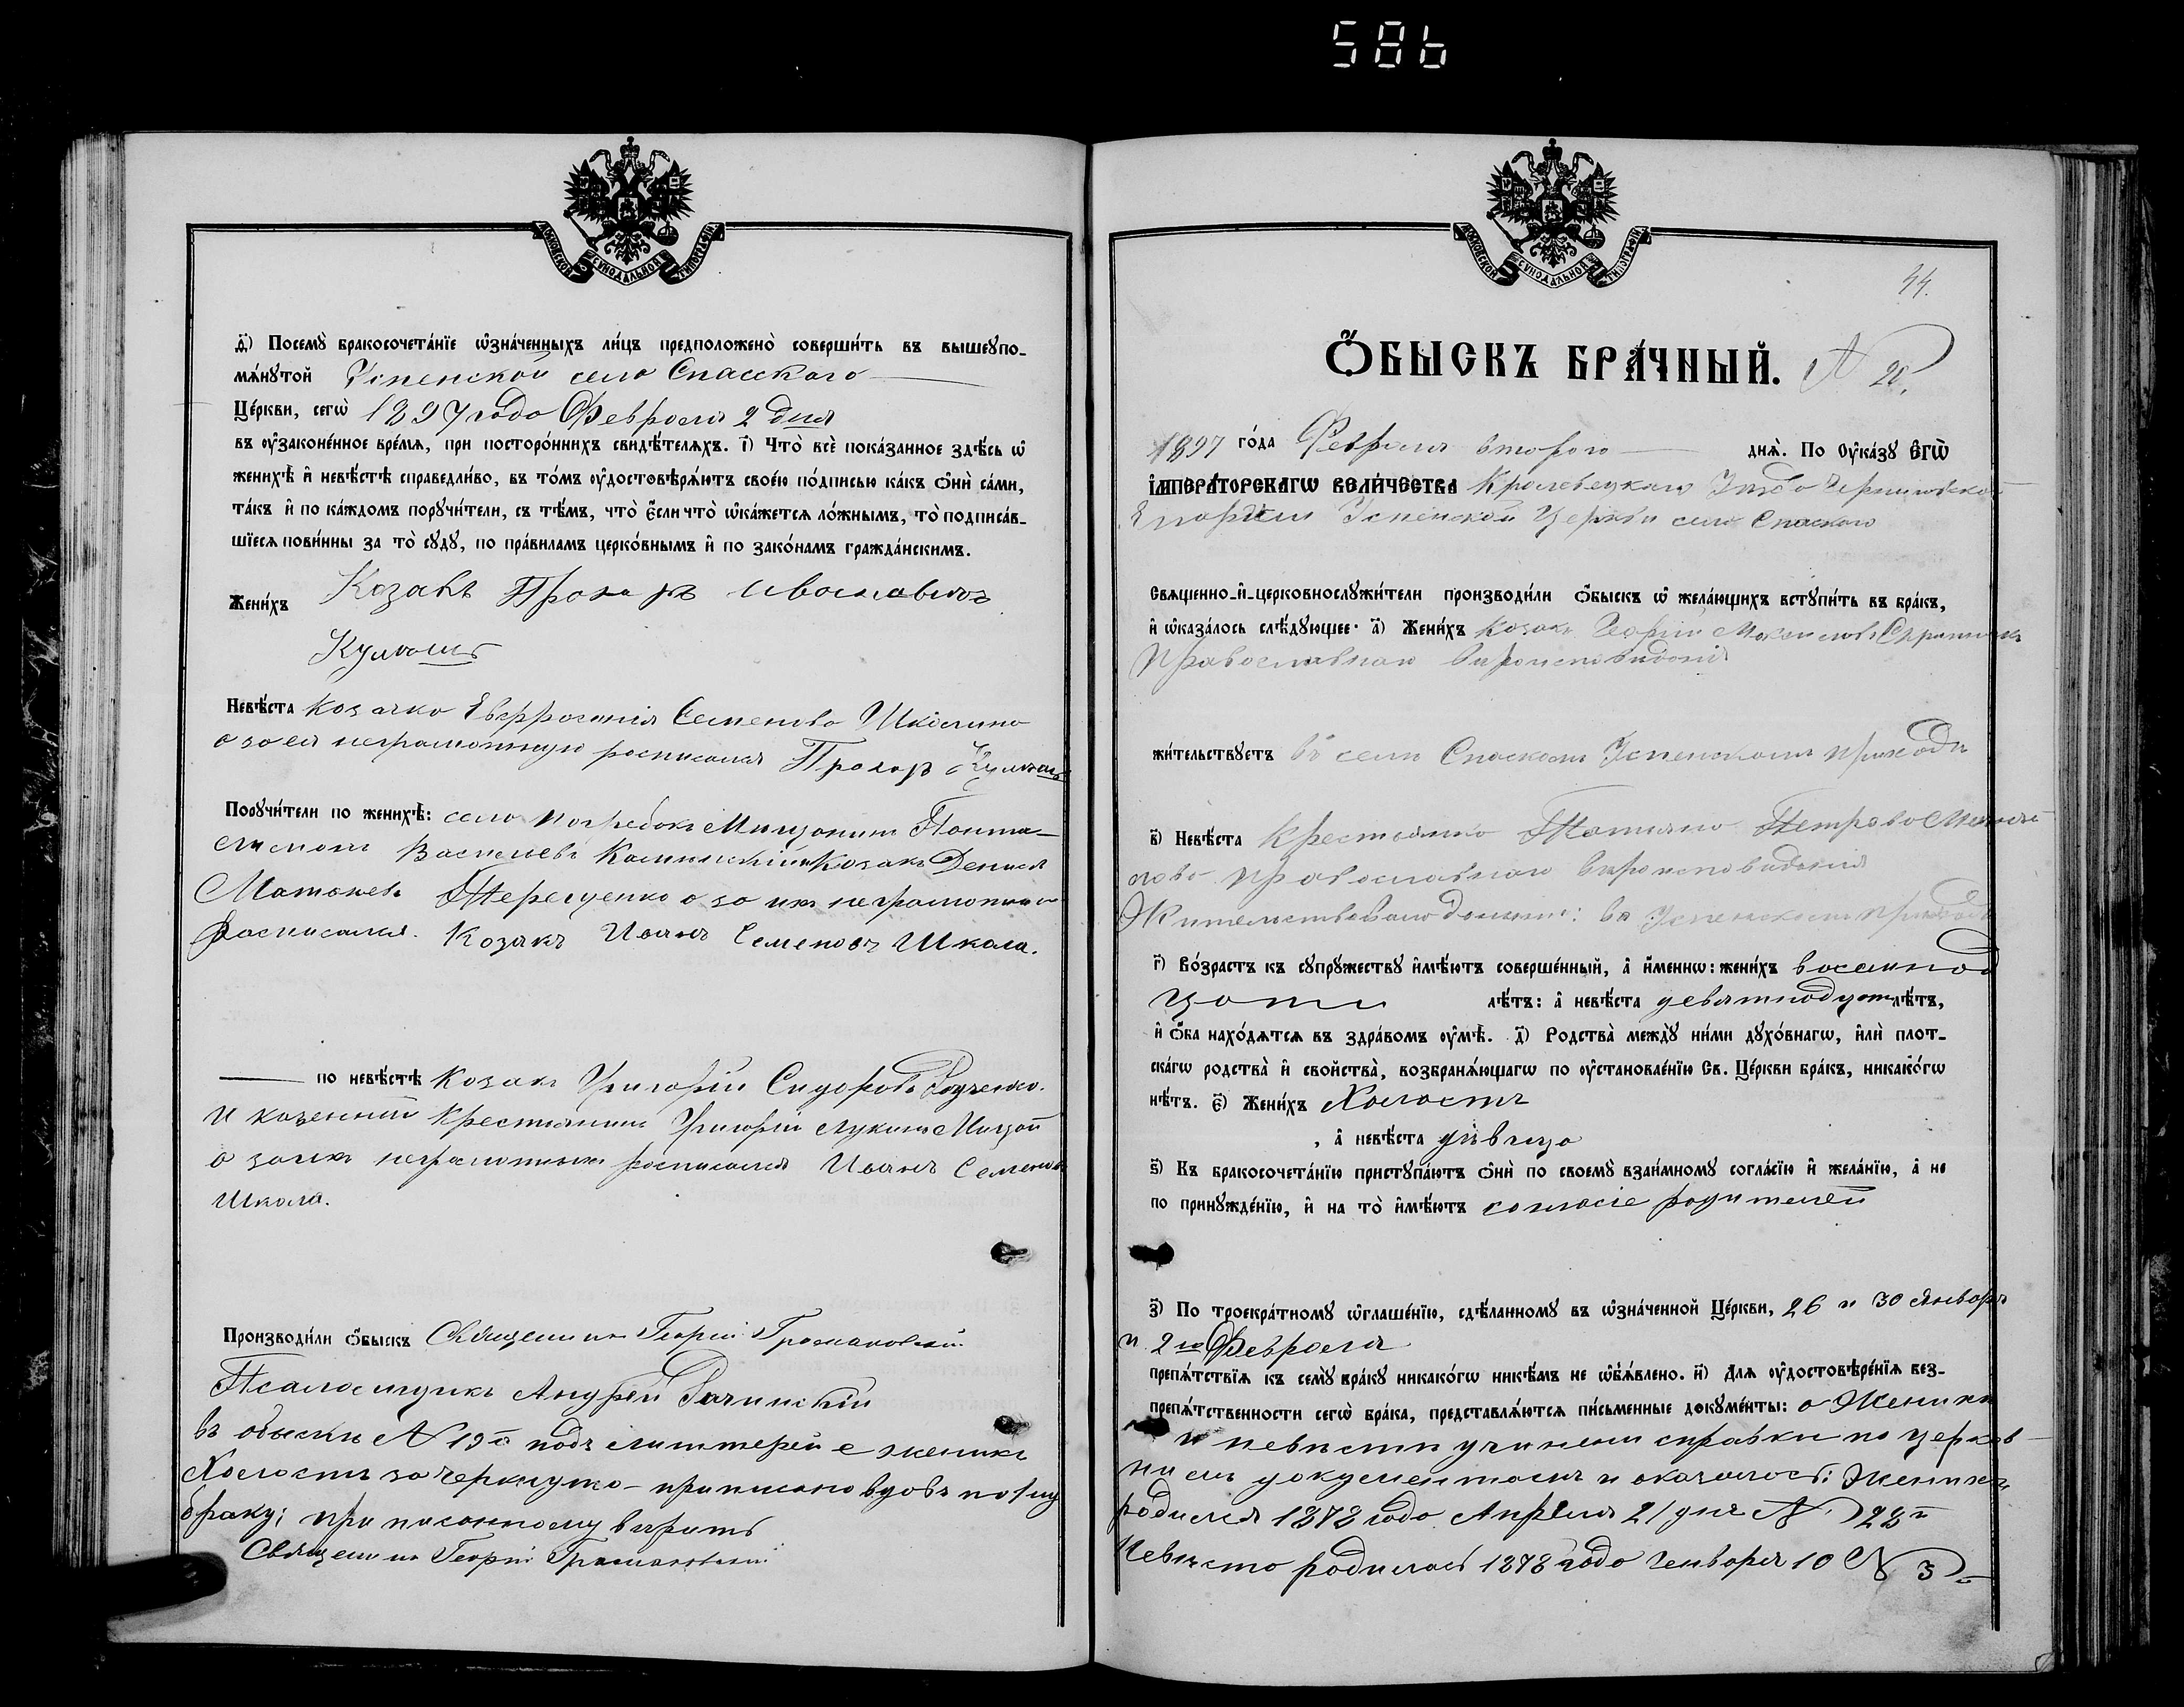 586
МОСКОВСКОЙ СУНОДАЛЬНОЙ ТИПОГРАФІИ
ѳ҃) Посемꙋ̀ бракосочета́нїе ѡ҆зна́ченныхъ ли́цъ предположено̀ соверши́ть въ вышеꙋпо-
мѧ́нꙋтой Успенской села Спасскаго
Це́ркви, сегѡ̀ 1897 года Февраля 2 дня
въ оу҆законе́нное вре́мѧ, при посторо́ннихъ свидѣ́телѧхъ. і҃) Что̀ всѐ пока́занное здѣ́сь ѡ҆
женихѣ̀ и҆ невѣ́стѣ справедли́во, въ то́мъ оу҆достовѣрѧ́ютъ свое́ю по́дписью ка́къ ѻ҆нѝ са́ми,
та́къ и҆ по ка́ждомъ порꙋчи́тели, съ тѣ́мъ, что̀ є҆́сли что̀ ѡ҆ка́жетсѧ ло́жнымъ, то̀ подписа́в-
шїесѧ пови́нны за то̀ сꙋдꙋ̀, по пра́виламъ церко́внымъ и҆ по зако́намъ гражда́нскимъ.
Жени́хъ Козакъ Прохоръ
Кулешъ
Невѣ́ста Козачка Евфросинія Семенова Школина
а за ея неграмотную росписался Прохоръ Кулешъ
Порꙋчи́тели по женихѣ̀: села Погребокъ Мищанинъ Панте-
леимонъ Васильевъ Козакъ Денисъ
Терещенко а за ихъ неграмотныхъ
Расписался. Козакъ Иванъ Семеновъ Школа.
по невѣ́стѣ Козакъ Григорій Сидоровъ
и казенный Крестьянинъ Григорій Лукинъ
а за ихъ неграмотныхъ росписался Иванъ Семеновъ
Школа.
Производи́ли ѻ҆́быскъ Священникъ Георгій
Псаломщикъ Андрей Рачинскій
въ обыскѣ № 19й подъ литтерой е женихъ
Холостъ зачеркнуто – приписано вдовъ по 1му
браку; приписанному вѣрить
Священникъ Георгій
МОСКОВСКОЙ СУНОДАЛЬНОЙ ТИПОГРАФІИ
44.
Ѻ҆́БЫСКЪ БРА́ЧНЫЙ. №
1897 го́да Февраля второго днѧ̀. По Оу҆ка́зꙋ Є҆ГѠ̀
І҆МПЕРА́ТОРСКАГѠ ВЕЛИ́ЧЕСТВА Кролевецкаго Уѣзда Черниговской
Епархіи Успенской Церкви села Спаскаго
Свѧще́нно-и҆-церковнослꙋжи́тели производи́ли ѻ҆́быскъ ѡ҆ жела́ющихъ встꙋпи́ть въ бра́къ,
и҆ ѡ҆каза́лось слѣ́дꙋющее: а҃) Жени́хъ Козакъ Георгій
Православнаго вѣроисповѣданія
жи́тельствꙋетъ въ селѣ Спаскомъ Успенскомъ приходѣ
в҃) Невѣ́ста Крестьянка Татіана Петрова
Православнаго вѣроисповѣданія
Жительствовала доныне: въ Успенскомъ приходѣ
г҃) Во́зрастъ къ сꙋпрꙋ́жествꙋ и҆мѣ́ютъ соверше́нный, а҆ и҆́меннѡ: жени́хъ восемнад
цати лѣ́тъ: а҆ невѣ́ста девятнадцати лѣ́тъ,
и҆ ѻ҆́ба нахо́дѧтсѧ въ здра́вомъ оу҆мѣ̀. д҃) Родства̀ междꙋ̀ ни́ми дꙋхо́внагѡ, и҆лѝ плот-
ска́гѡ родства̀ и҆ сво́йства̀, возбранѧ́ющагѡ по оу҆становле́нїю Св. Це́ркви бра́къ, никако́гѡ
нѣ́тъ. є҃) Жени́хъ Холостъ
, а҆ невѣ́ста дѣвица
ѕ҃) Къ бракосочета́нїю пристꙋпа́ютъ ѻ҆нѝ по своемꙋ̀ взаи́мномꙋ согла́сїю и҆ жела́нїю, а҆ не
по принꙋжде́нїю, и҆ на то̀ и҆мѣ́ютъ согласіе родителей
з҃) По троекра́тномꙋ ѡ҆глаше́нїю, сдѣ́ланномꙋ въ ѡ҆зна́ченной Це́ркви, 26 и 30 Января
и 2го Февраля
препѧ́тствїѧ къ семꙋ̀ бра́кꙋ никако́гѡ никѣ́мъ не ѡ҆б̾ѧ́влено. и҃) Длѧ оу҆достовѣре́нїѧ без-
препѧ́тственности сегѡ̀ бра́ка, представлѧ́ютсѧ пи́сьменные докꙋме́нты: о Женихѣ
и невѣстѣ учинены справки по церков-
нымъ документамъ и оказалось: Женихъ
родился 1878 года Апреля 21 дня № 28й
Невѣста родилась 1878 года Генваря 10 № 3й